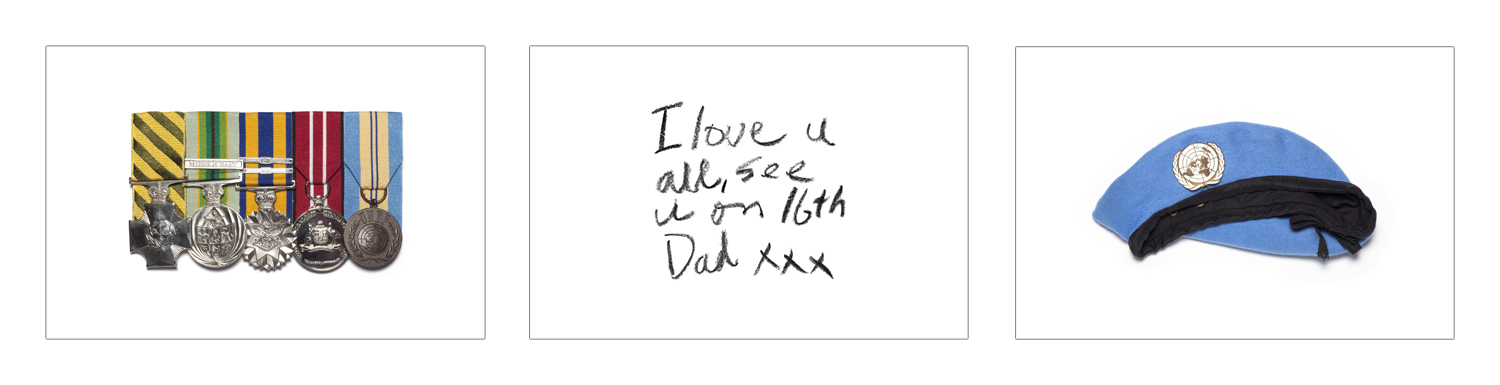 I love u
all, see
u on 16th
Dad xxx